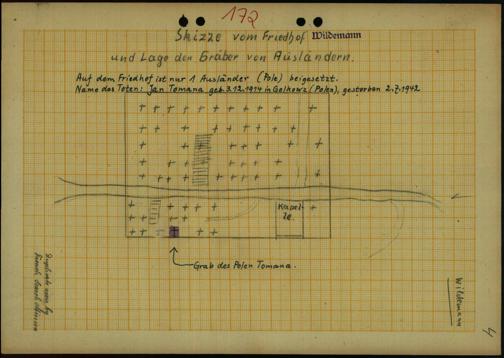 172
Skizze vom Friedhof Wildemann
und Lage der Gräber von Ausländern.
Auf dem Friedhof ist nur 1 Ausländer (Pole) beigesetzt.
Name des Toten: Jan Tomana geb. 3.12.1914 in Golkowz (Polen), gestorben 2.7.1942
Kapel-
le.
Grab des Polen Tomana.
Wildemann
4